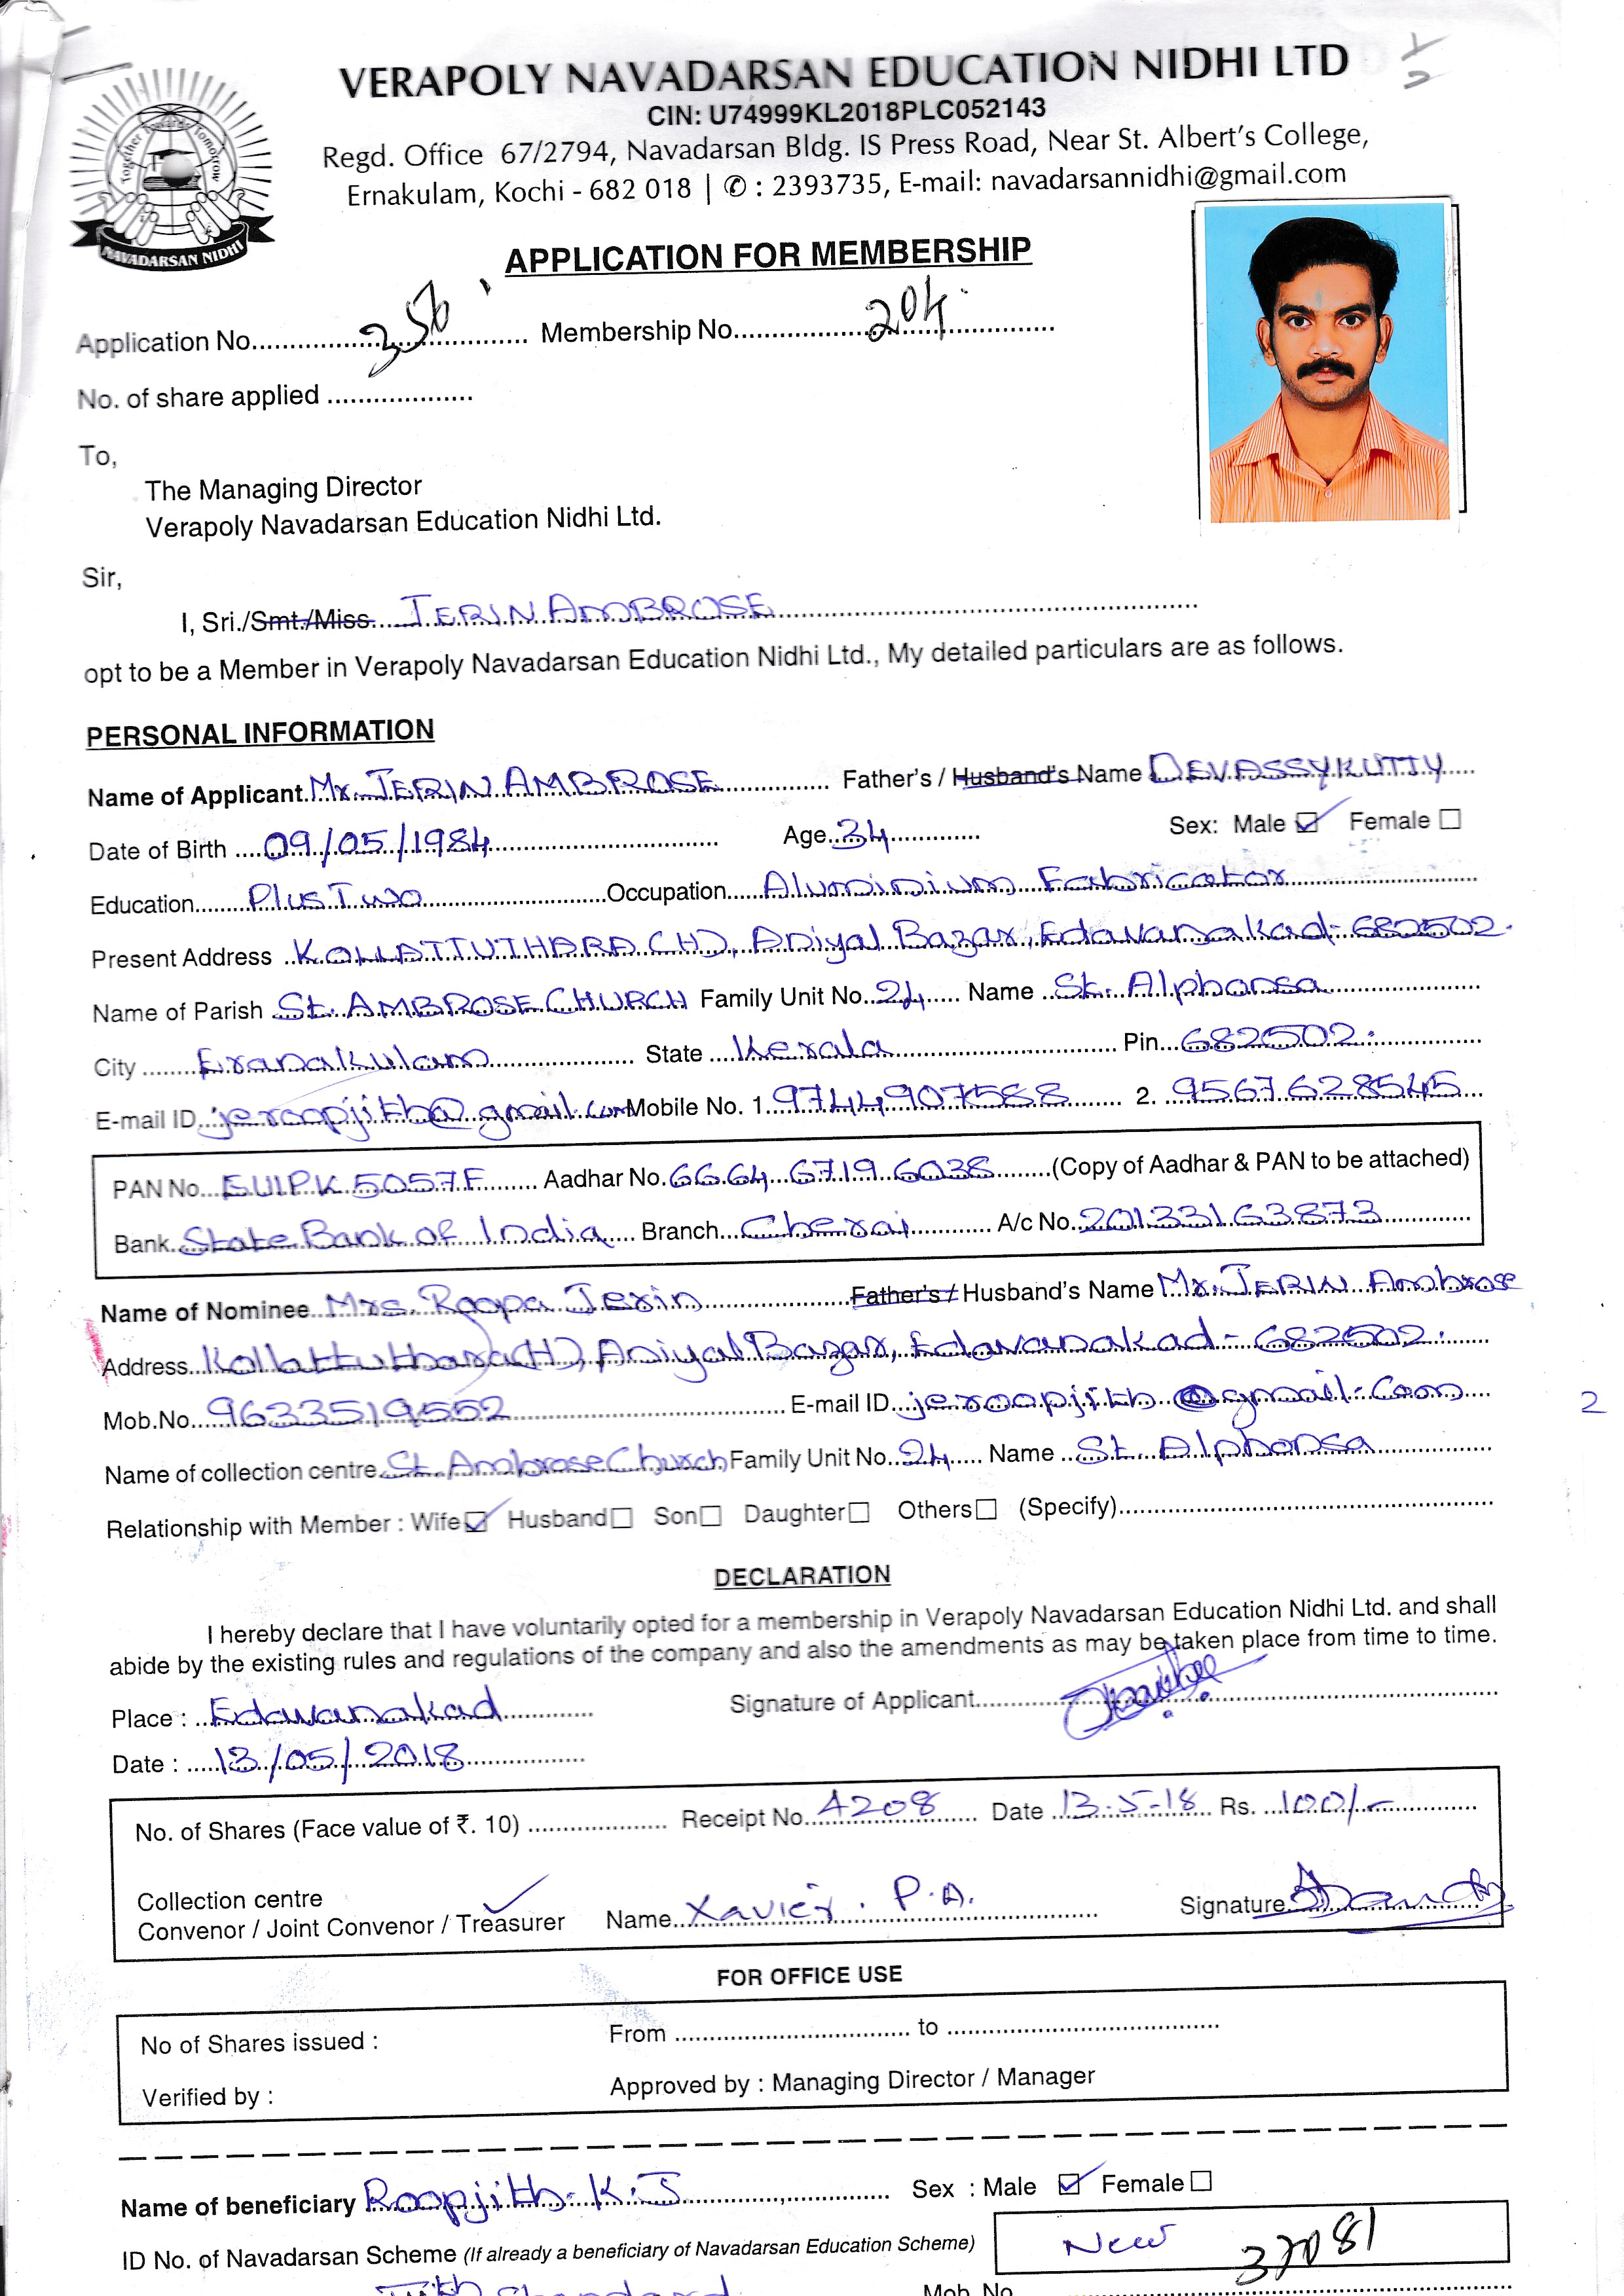 VERAPOLY NAVADARSAN EDUCATION NIDHI LTD
CIN: U74999KL2018PLC052143
Regd. Office 67/2794, Navadarsan Bldg. IS Press Road, Near St. Albert's College,
Ernakulam, Kochi - 682 018 | ✆ : 2393735, E-mail: navadarsannidhi@gmail.com
Together Towards Tomorrow
NAVADARSAN NIDHI
APPLICATION FOR MEMBERSHIP
Application No. 356 Membership No. 204
No. of share applied
To,
The Managing Director
Verapoly Navadarsan Education Nidhi Ltd.
Sir,
I, Sri./Smt./Miss. JERIN AMBROSE
opt to be a Member in Verapoly Navadarsan Education Nidhi Ltd., My detailed particulars are as follows.
PERSONAL INFORMATION
Name of Applicant Mr. JERIN AMBROSE Father's / Husband's Name DEVASSYKUTTY
Date of Birth 09/05/1984 Age 34 Sex: Male ☑ Female ☐
Education Plus Two Occupation Aluminium Fabricator
Present Address KOLLATTUTHARA (H), Aniyal Bazar, Edavanakad-682502.
Name of Parish St. AMBROSE CHURCH Family Unit No. 24 Name St. Alphonsa
City Eranakulam State Kerala Pin 682502.
E-mail ID jeroopjith@gmail.com Mobile No. 1 9744907588 2. 9567628545
PAN No. EUIPK5057F Aadhar No. 6664 6719 6038 (Copy of Aadhar & PAN to be attached)
Bank State Bank of India Branch Cherai A/c No. 20133163873
Name of Nominee Mrs. Roopa Jerin Father's / Husband's Name Mr. JERIN Ambrose
Address Kollattuthara(H), Aniyal Bazar, Edavanakad-682502.
Mob.No. 9633519552 E-mail ID jeroopjith@gmail.com
2
Name of collection centre St. Ambrose Church Family Unit No. 24 Name St. Alphonsa
Relationship with Member : Wife ☑ Husband ☐ Son ☐ Daughter ☐ Others ☐ (Specify)
DECLARATION
I hereby declare that I have voluntarily opted for a membership in Verapoly Navadarsan Education Nidhi Ltd. and shall
abide by the existing rules and regulations of the company and also the amendments as may be taken place from time to time.
Place : Edavanakad Signature of Applicant
Date : 13/05/2018
No. of Shares (Face value of ₹. 10) Receipt No. 4208 Date 13-5-18 Rs. 100/-
Collection centre
Convenor / Joint Convenor / Treasurer Name Xavier. P.A. Signature
FOR OFFICE USE
No of Shares issued : From to
Verified by : Approved by : Managing Director / Manager
Name of beneficiary Roopjith. K.J Sex : Male ☑ Female ☐
ID No. of Navadarsan Scheme (If already a beneficiary of Navadarsan Education Scheme) New 37081
Mob. No.